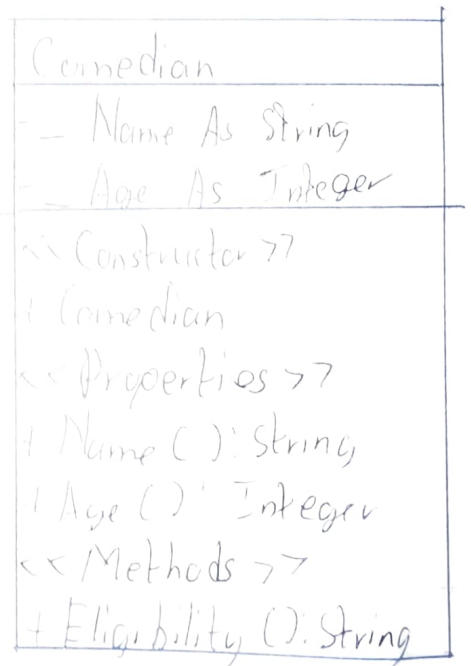 Comedian
- _ Name As String
- _ Age As Integer
<< Constructor >>
+ Comedian
<< Properties >>
+ Name ( ) : String
+ Age ( ) : Integer
<< Methods >>
+ Eligibility ( ) : String